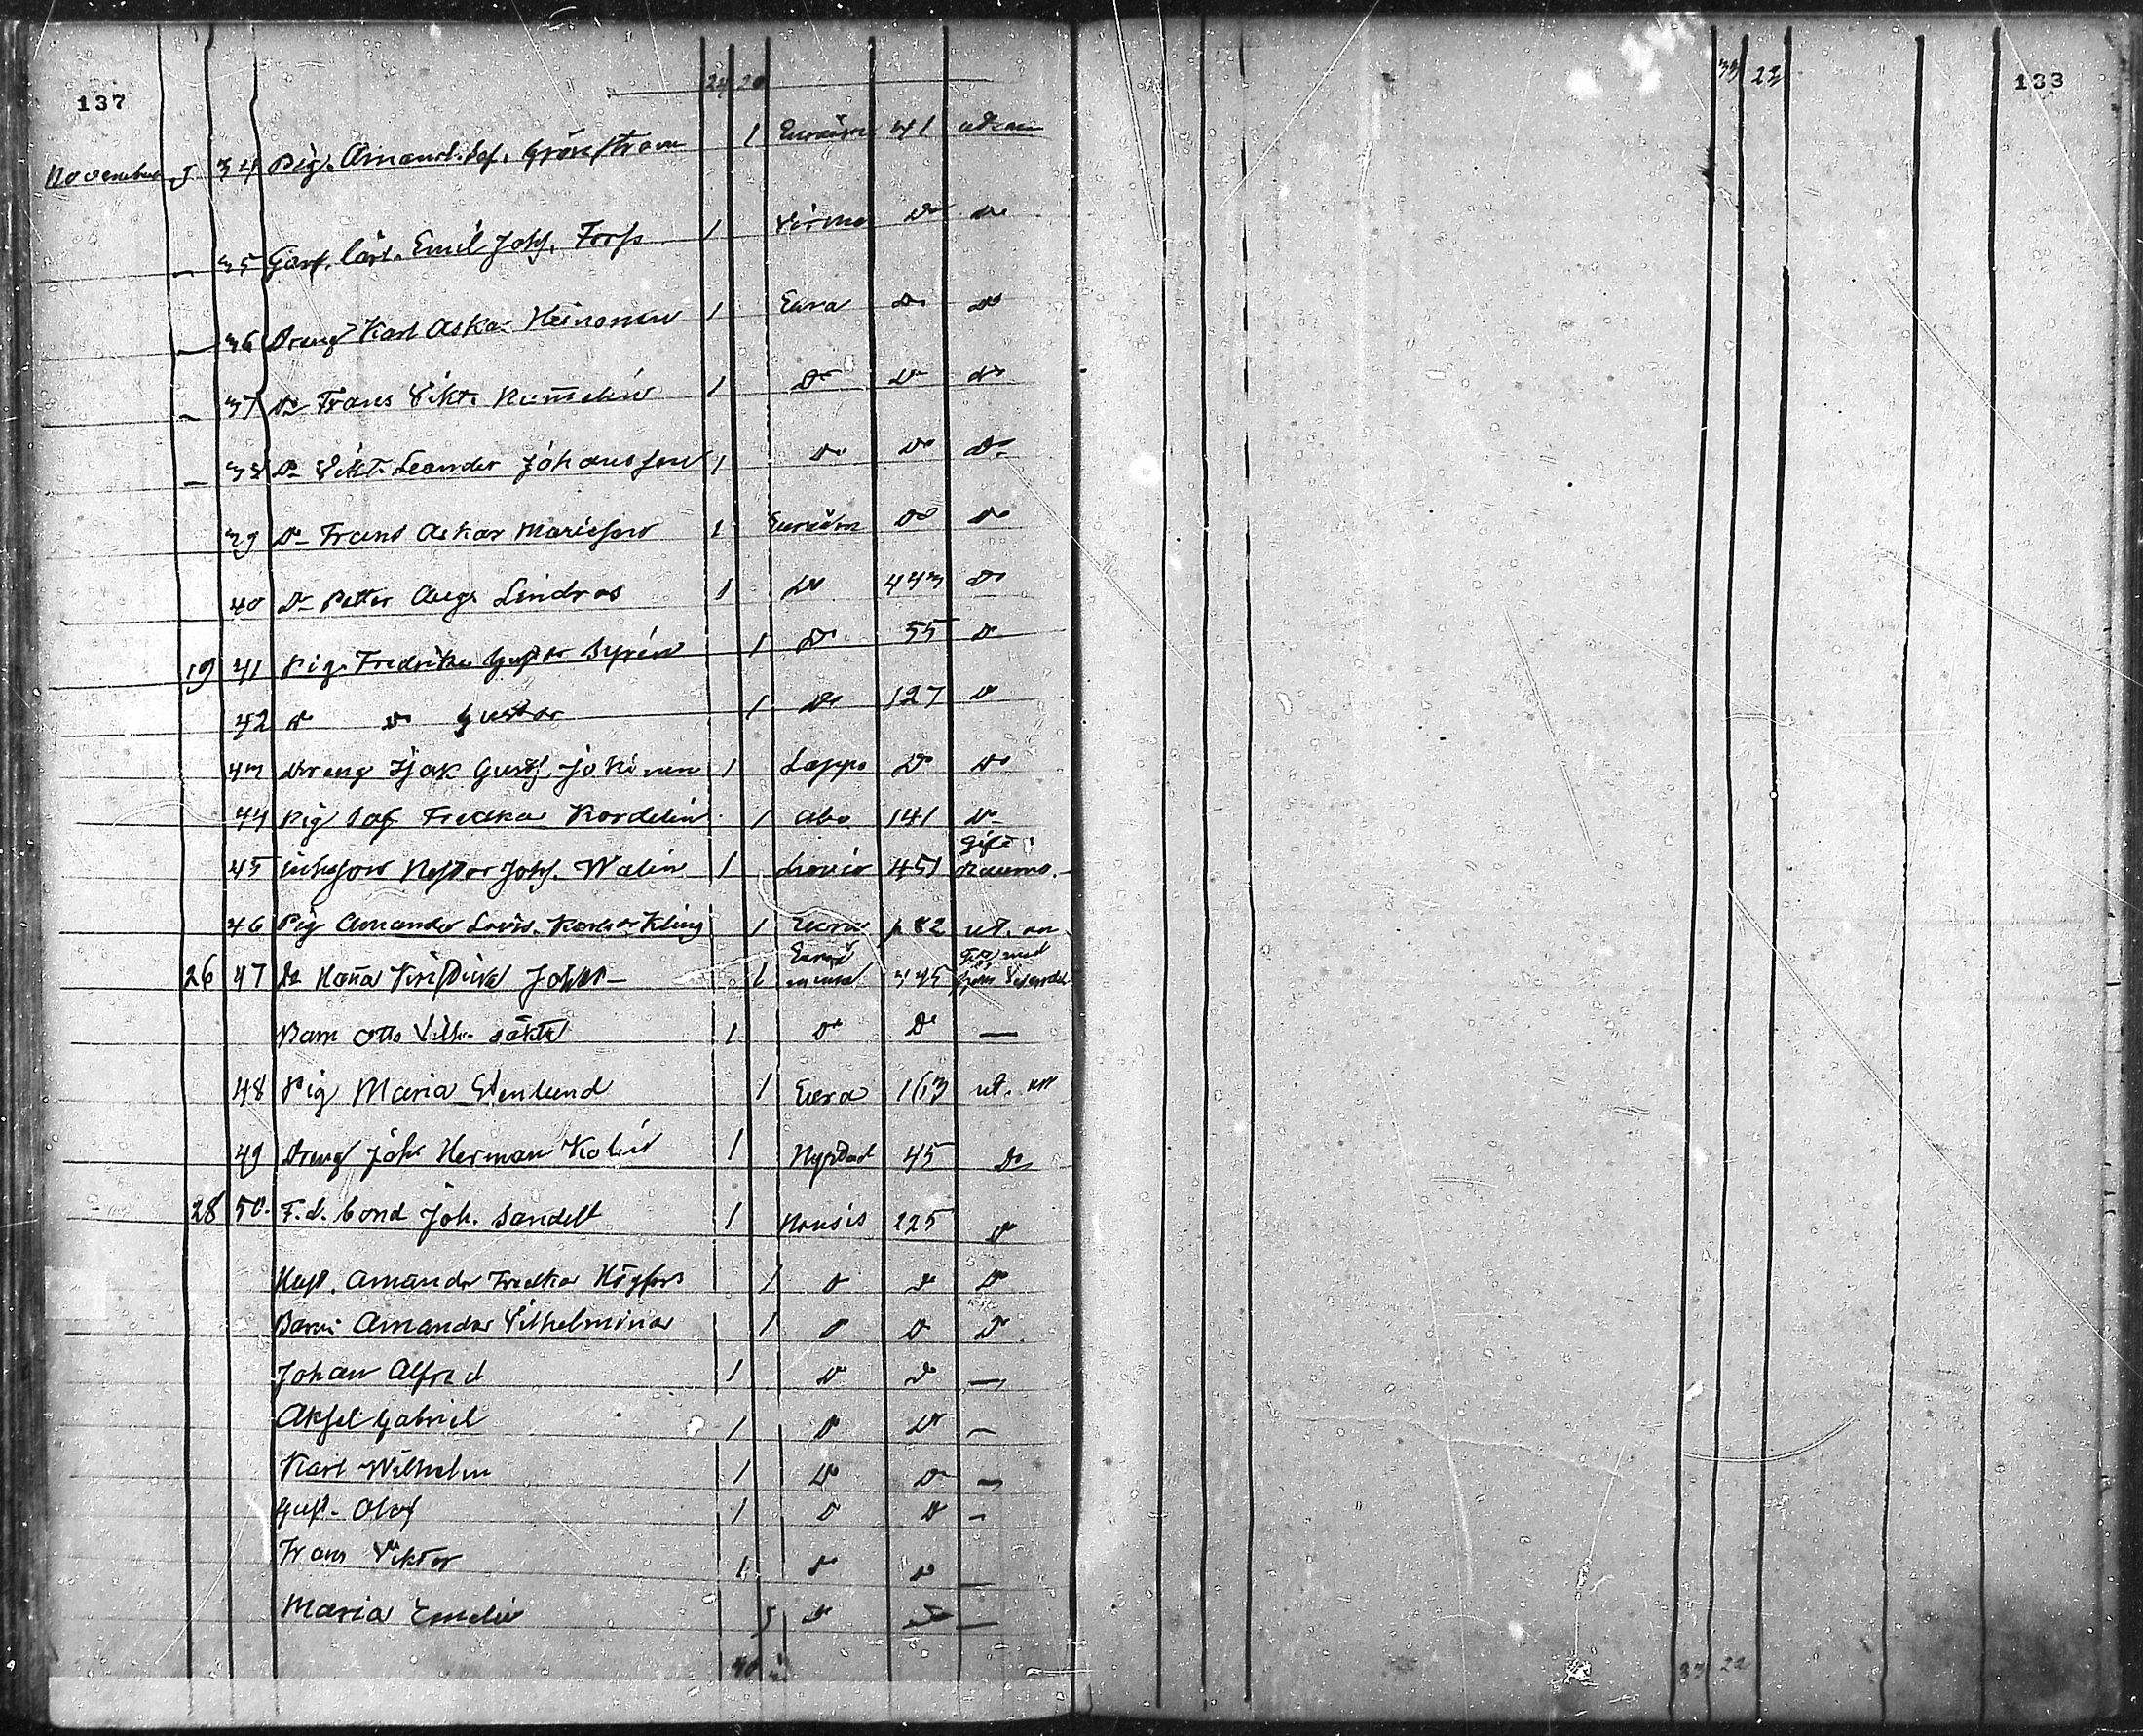 137
24 20
November 5 34 Pig. Amand. Sof. Grönstrom 1 Euraåm 41
35 Garf. lärl. Emil Joh. Forss 1 Virmo Do Do
36 Dreng Karl Oskar Heinonen 1 Eura Do Do
37 Do Frans Vikt. Numelin 1 Do Do Do
38 Do Vikt. Leander Johansson 1 Do Do Do
39 Do Frans Oskar Mariesson 1 Euraåm Do Do
40 Do Petter Aug. Lindros 1 Do 443 Do
19 41 Pig. Fredrika Gustor Syrén 1 Do 55 Do
42 Do Do Gustor 1 Do 127 Do
43 Dreng Isak Gust. Jokinen 1 Lappo Do Do
44 Pig Sof Fredka Nordelin 1 Abo 141 Do
gift i
45 Nestor Joh. Walin 1 451 Raumo.
46 Pig Amanda Lovis. Karlsor Kling 1 Eura p 82 ut. an
Eura
26 47 Do Kristina Johsd 1 minne 345
Barn Otto Vilh. 1 Do Do —
48 Pig Maria Stenlund 1 Eura 163 ut. an
49 Dreng Joh Herman Kolin 1 Nystad 45 Do
28 50. F.d. bond Joh. Sandell 1 Nousis 225 Do
Hust. Amanda Fredka Högfors 1 Do Do Do
Barn Amanda Vilhelmina 1 Do Do Do
Johan Alfred 1 Do Do —
Aksel Gabriel 1 Do Do —
Karl Wilhelm 1 Do Do —
Gust. Olof 1 Do Do —
Frans Viktor 1 Do Do —
Maria Emelie 1 Do Do —
133
33 23
33 22